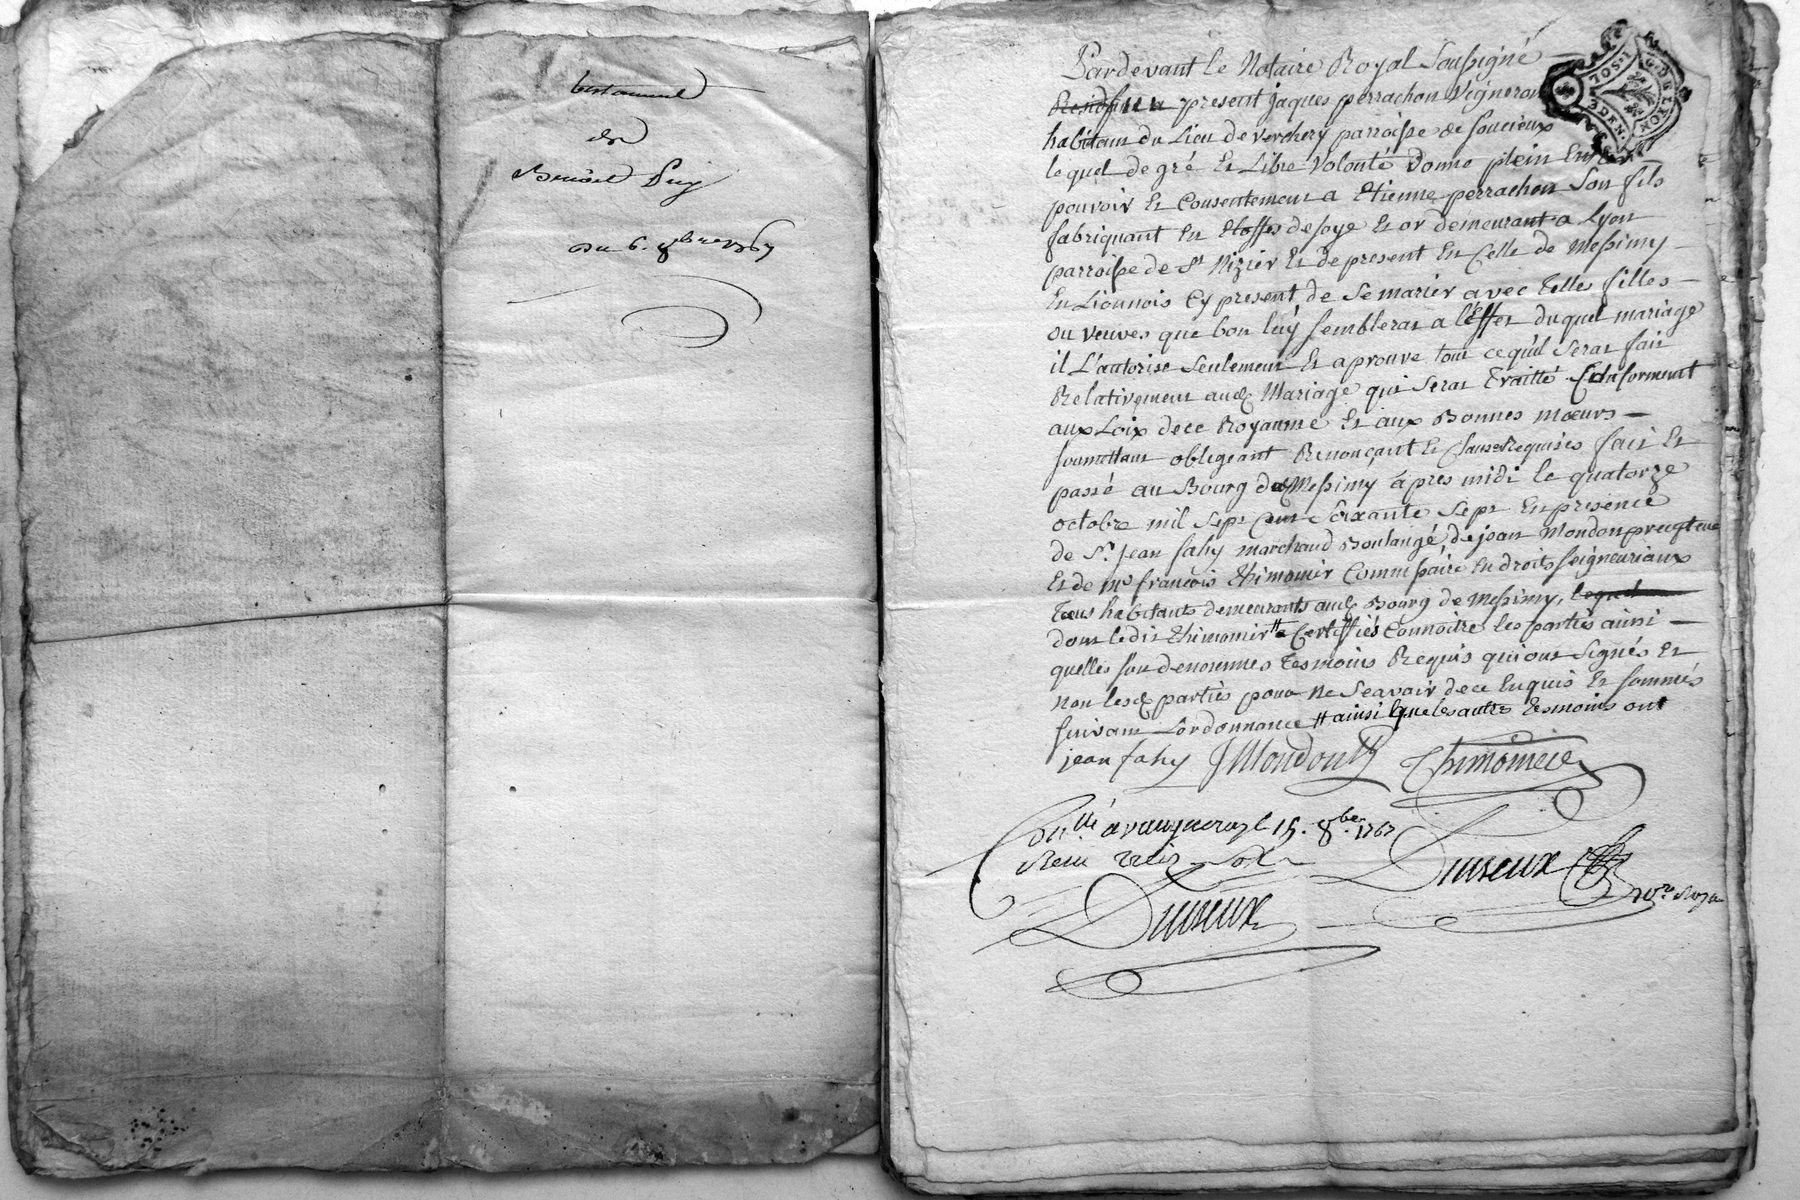 testament
de
Benoit Puy
Du 6. 8bre 1767
Pardevant le Notaire Royal Soussigné
present jaques perrachon Vigneron
habitant du Lieu de verchery parroisse de soucieux
lequel de gré Et Libre Volonté Donne plein Entier
pouvoir Et Consentement a Etienne perrachon Son fils
fabriquant En Etoffes de soye Et or demeurant a Lyon
parroisse de St Nizier Et de present En Celle de Messimy
En Lionnois Cy present de Se marier avec Telle filles
ou veuves que bon luy semblerat a l'Effet duquel mariage
il L'autorise Seulement Et aprouve tout cequil Serat fait
Relativement aud Mariage qui Serat Traitté Conforment
aux Loix de ce Royaume Et aux Bonnes mœurs
soumettant obligeant Renonçant Et Clauses Requises fait Et
passé au Bourg de Messimy après midi le quatorze
octobre mil Sept Cent Soixante Sept En presence
de Sr jean fahy marchand Boulangé de jean Mondon
Et de Me françois Thimonier Commissaire En droits seigneuriaux
Tous habitants demeurants aud Bourg de Messimy, lequel
dont ledit Thimonier # a Certiffiés Connoitre les parties ainsi
quelles sont denommés Tesmoins Requis qui ont Signés Et
Non lesd parties pour Ne Scavoir de ce Enquis Et sommés
suivant Lordonnance # ainsi que les autres Tesmoins ont
jean fahy JMondon Thimonier
Conllé a vaugneray le 15. 8bre 1767
Reçu treize sols
Dussurx Dussurx
Nore Royal
2 SOLS
3 DEN.
G. DE LYON